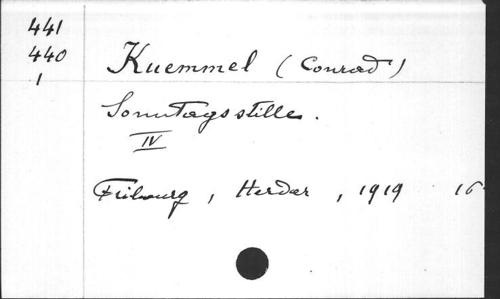 441
440
1
Kuemmel (Conrad)
Sonntagsstille.
IV
Fribourg, Herder, 1919 16